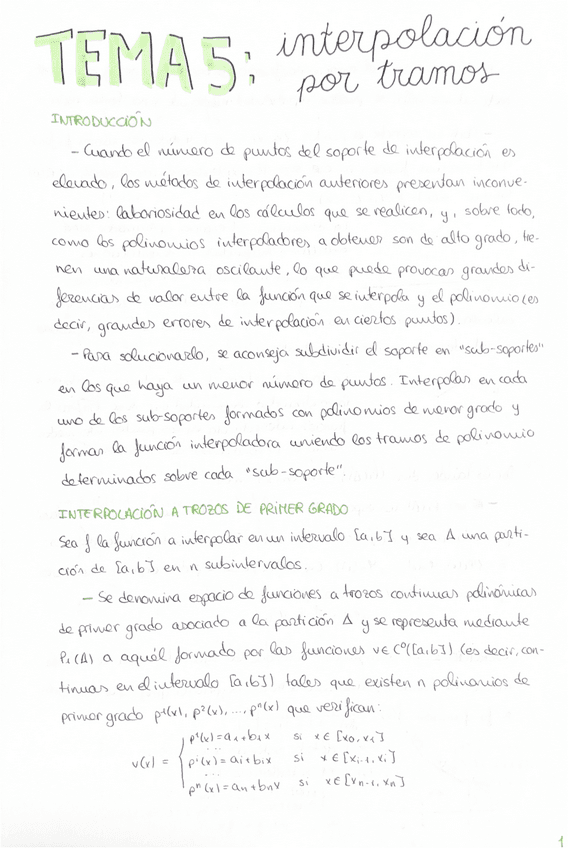 TEMA 5: interpolación
por tramos
INTRODUCCIÓN
- Cuando el número de puntos del soporte de interpolación es
elevado, los métodos de interpolación anteriores presentan inconve-
nientes: laboriosidad en los cálculos que se realicen, y, sobre todo,
como los polinomios interpoladores a obtener son de alto grado, tie-
nen una naturaleza oscilante, lo que puede provocar grandes di-
ferencias de valor entre la función que se interpola y el polinomio (es
decir, grandes errores de interpolación en ciertos puntos).
- Para solucionarlo, se aconseja subdividir el soporte en "sub-soportes"
en los que haya un menor número de puntos. Interpolar en cada
uno de los sub-soportes formados con polinomios de menor grado y
formar la función interpoladora uniendo los tramos de polinomio
determinados sobre cada "sub-soporte".
INTERPOLACIÓN A TROZOS DE PRIMER GRADO
Sea f la función a interpolar en un intervalo [a,b] y sea Δ una parti-
ción de [a,b] en n subintervalos.
- Se denomina espacio de funciones a trozos continuas polinómicas
de primer grado asociado a la partición Δ y se representa mediante
P₁(Δ) a aquél formado por las funciones v∈C⁰([a,b]) (es decir, con-
tinuas en el intervalo [a,b]) tales que existen n polinomios de
primer grado p¹(x), p²(x), ..., pⁿ(x) que verifican:
p¹(x)=a₁+b₁x si x∈[x₀,x₁]
...
v(x) = { pⁱ(x)=aᵢ+bᵢx si x∈[xᵢ₋₁,xᵢ]
...
pⁿ(x)=aₙ+bₙx si x∈[xₙ₋₁,xₙ]
1